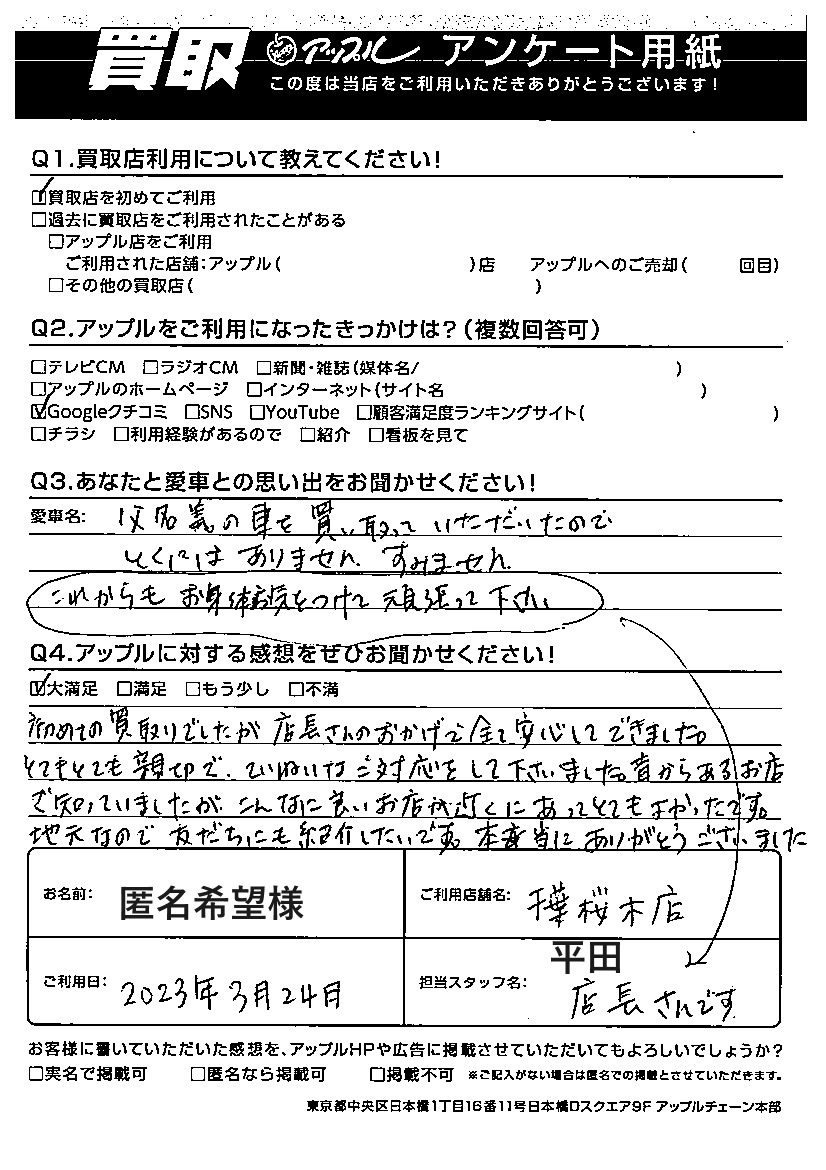 買取 アップル アンケート用紙
この度は当店をご利用いただきありがとうございます!
Q1.買取店利用について教えてください!
☑買取店を初めてご利用
□過去に買取店をご利用されたことがある
□アップル店をご利用
ご利用された店舗:アップル( )店 アップルへのご売却( 回目)
□その他の買取店( )
Q2.アップルをご利用になったきっかけは?(複数回答可)
□テレビCM □ラジオCM □新聞・雑誌(媒体名/ )
□アップルのホームページ □インターネット(サイト名 )
☑Googleクチコミ □SNS □YouTube □顧客満足度ランキングサイト( )
□チラシ □利用経験があるので □紹介 □看板を見て
Q3.あなたと愛車との思い出をお聞かせください!
愛車名: 父名義の車を買い取っていただいたので
とくにはありません。すみません。
これからもお身体気をつけて頑張って下さい
Q4.アップルに対する感想をぜひお聞かせください!
☑大満足 □満足 □もう少し □不満
初めての買取りでしたが店長さんのおかげで全て安心してできました。
とてもとても親切で、ていねいなご対応をして下さいました。昔からあるお店
で知っていましたが、こんなに良いお店が近くにあってとてもよかったです。
地元なので友だちにも紹介したいです。本当にありがとうございました
お名前: 匿名希望様
ご利用店舗名: 樺桜木店
ご利用日: 2023年3月24日
担当スタッフ名: 平田
店長さんです
お客様に書いていただいた感想を、アップルHPや広告に掲載させていただいてもよろしいでしょうか?
□実名で掲載可 □匿名なら掲載可 □掲載不可 ※ご記入がない場合は匿名での掲載とさせていただきます。
東京都中央区日本橋1丁目16番11号日本橋Dスクエア9F アップルチェーン本部